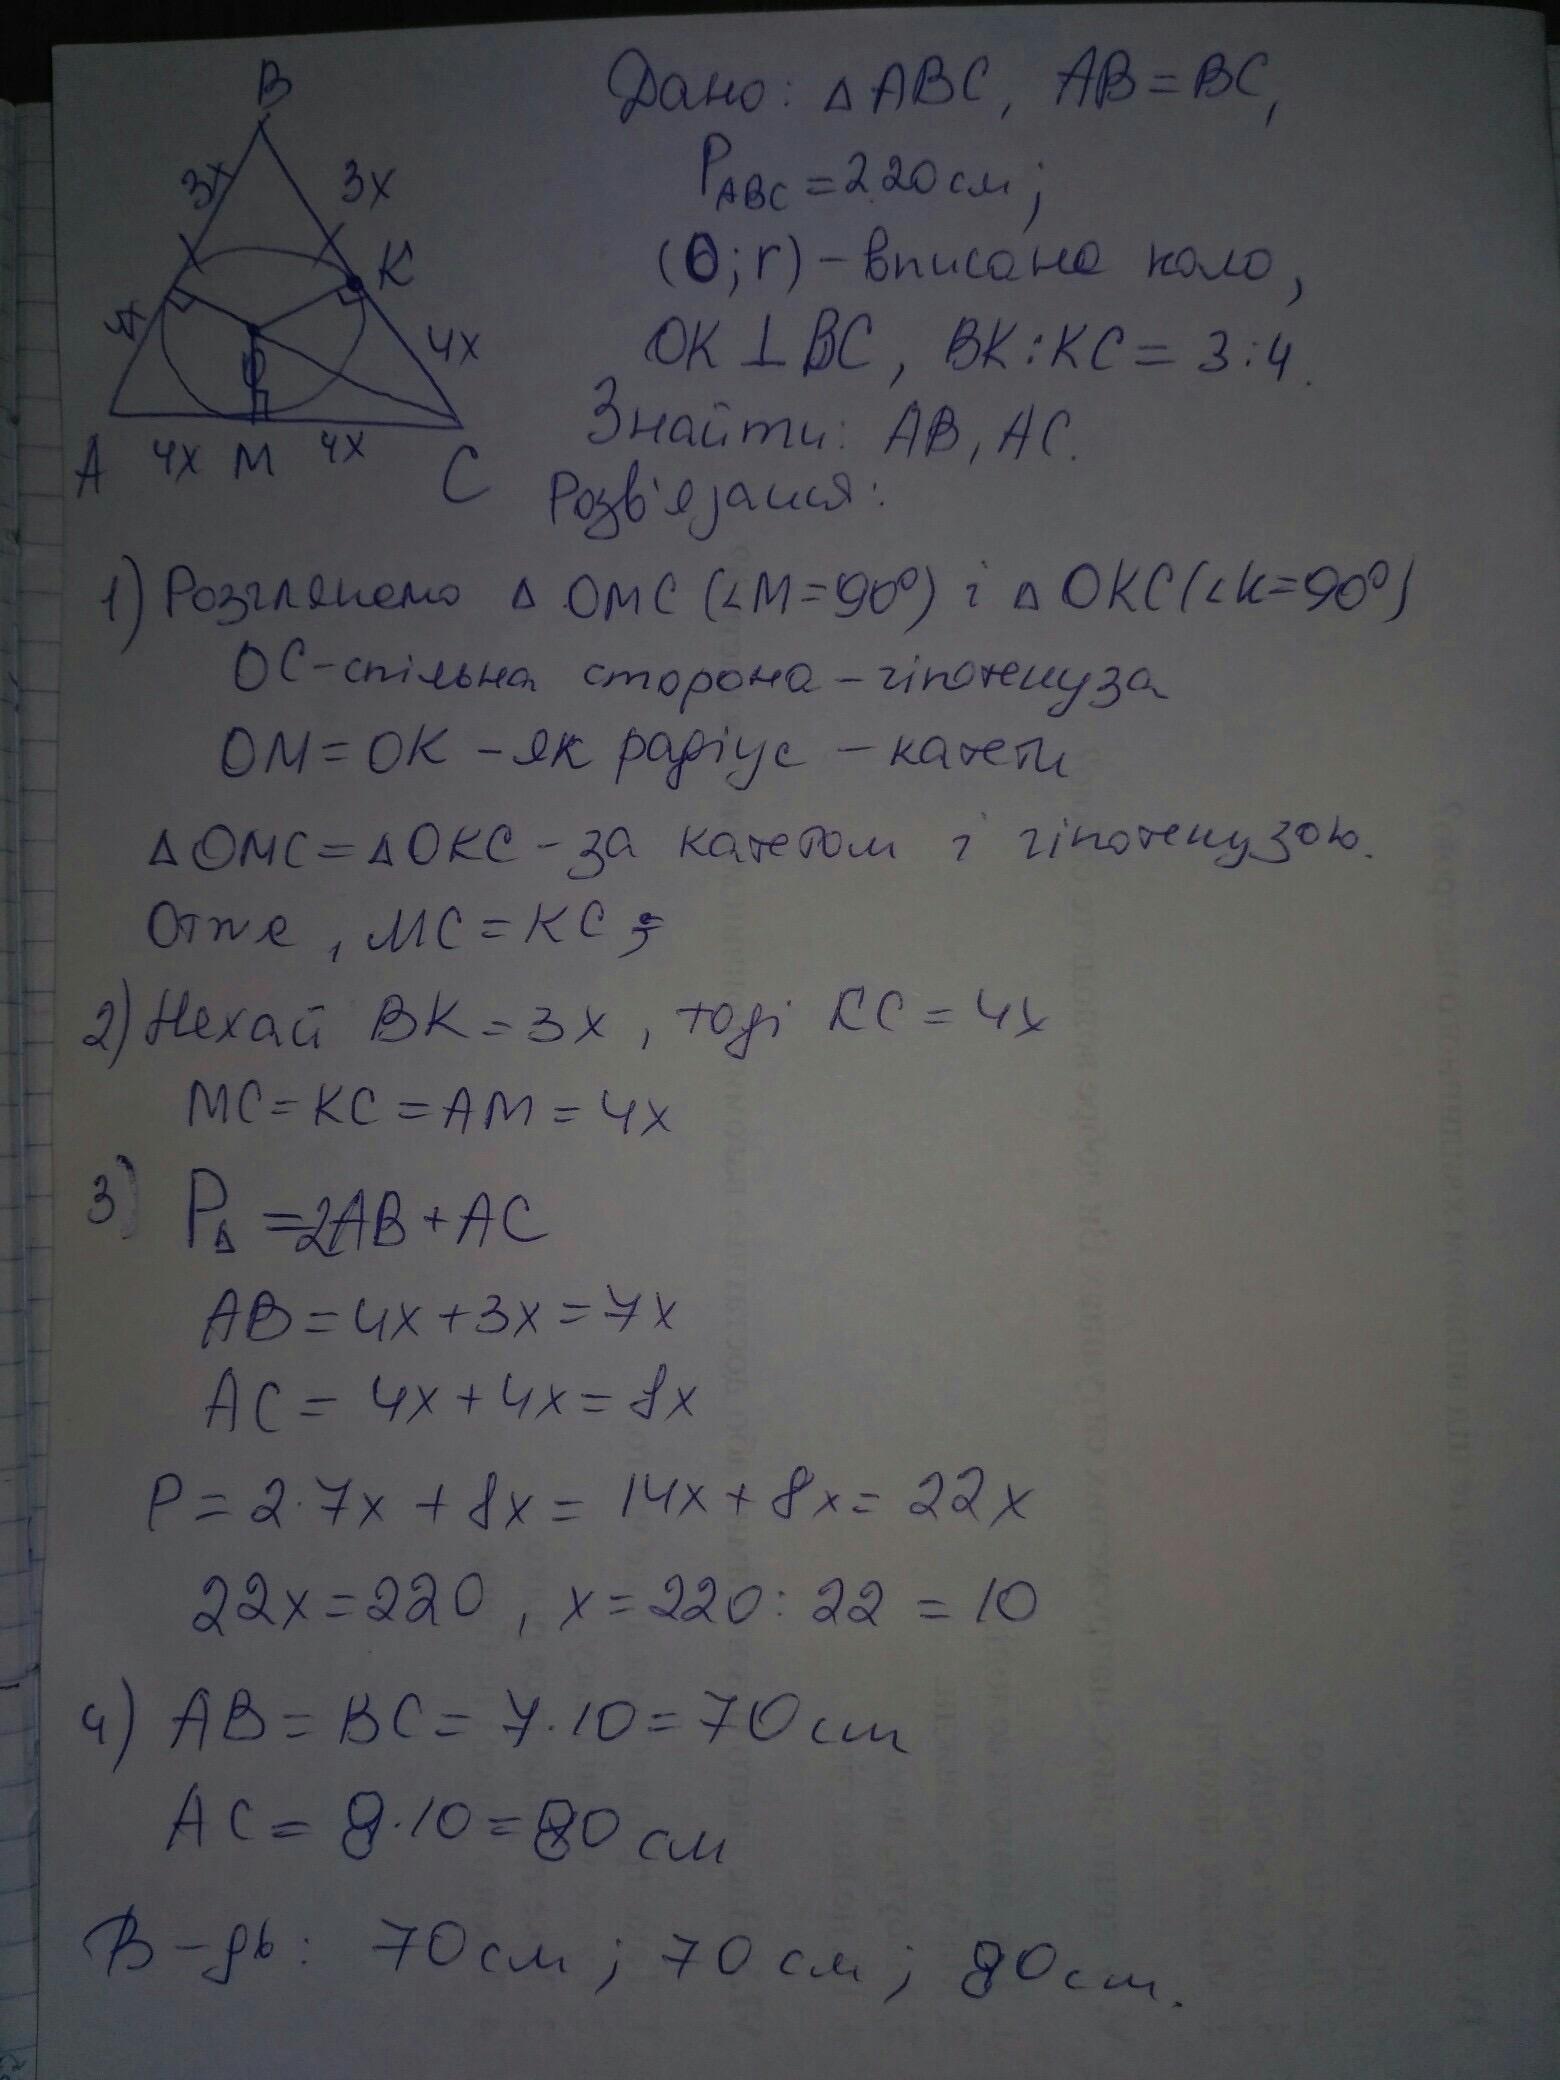 B
Дано: △ABC, AB=BC,
3x 3x
P_ABC = 220 см;
(O; r) – вписане коло,
K
4x
OK ⊥ BC, BK:KC = 3:4.
O
Знайти: AB, AC.
A 4x M 4x C
Розв'язання:
1) Розглянемо △ OMC (∠M=90°) і △ OKC (∠K=90°)
OC – спільна сторона – гіпотенуза
OM = OK – як радіус – катети
△OMC = △OKC – за катетом і гіпотенузою.
Отже, MC = KC;
2) Нехай BK = 3x, тоді KC = 4x
MC = KC = AM = 4x
3) P△ = 2AB + AC
AB = 4x + 3x = 7x
AC = 4x + 4x = 8x
P = 2·7x + 8x = 14x + 8x = 22x
22x = 220, x = 220 : 22 = 10
4) AB = BC = 7·10 = 70 см
AC = 8·10 = 80 см
В-дь: 70 см; 70 см; 80 см.